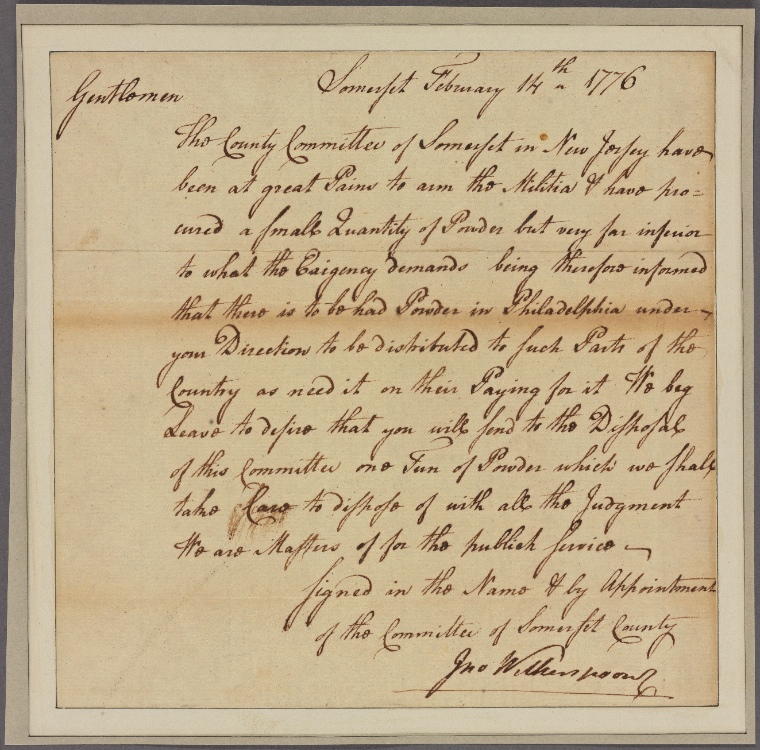 Somerset February 14th 1776
Gentlemen
The County Committee of Somerset in New Jersey have
been at great Pains to arm the Militia & have pro=
cured a small Quantity of Powder but very far inferior
to what the Exigency demands being therefore informed
that there is to be had Powder in Philadelphia under
your Direction to be distributed to such Parts of the
Country as need it on their Paying for it We beg
Leave to desire that you will send to the Disposal
of this Committee one Tun of Powder which we shall
take Care to dispose of with all the Judgment
We are Masters of for the publick Service
Signed in the Name & by Appointment
of the Committee of Somerset County
Jno Witherspoon